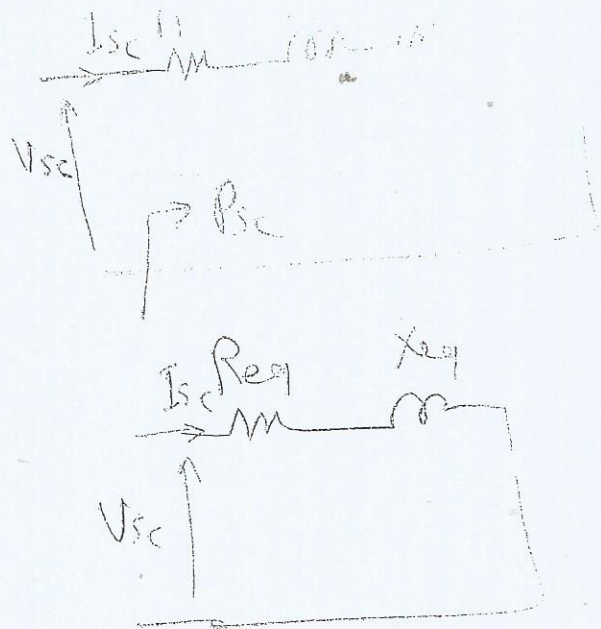 Isc
Vsc
Psc
Isc Req Xeq
Vsc